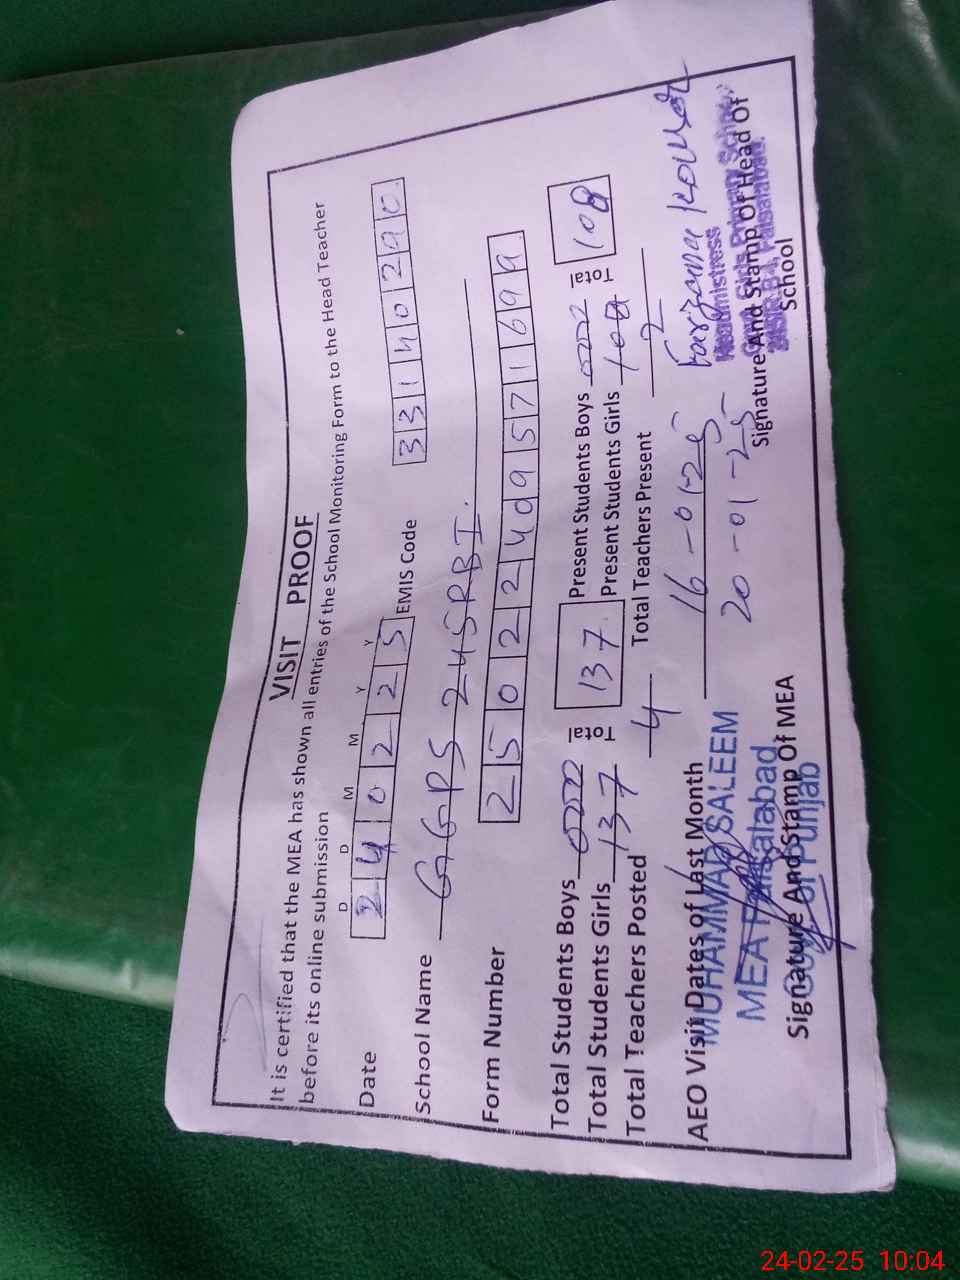 VISIT PROOF
It is certified that the MEA has shown all entries of the School Monitoring Form to the Head Teacher
before its online submission
D D M M Y Y
Date 2 4 0 2 2 5 EMIS Code 3 3 1 4 0 2 9 0
School Name GGPS 245RBI.
Form Number 2 5 0 2 2 4 0 9 5 7 1 6 9 9
Total Students Boys 000 Total 137 Present Students Boys 000 Total 108
Total Students Girls 137 Total Present Students Girls 108 T
Total Teachers Posted 4 Total Teachers Present 2
AEO Visit Dates of Last Month 16-01-25 Farzana Kousar
20-01-25
MUHAMMAD SALEEM
MEA Faisalabad
Govt of Punjab
Signature And Stamp Of MEA
Headmistress
Govt. Girls Primary School
Faisalabad.
Signature And Stamp Of Head Of
School
24-02-25 10:04